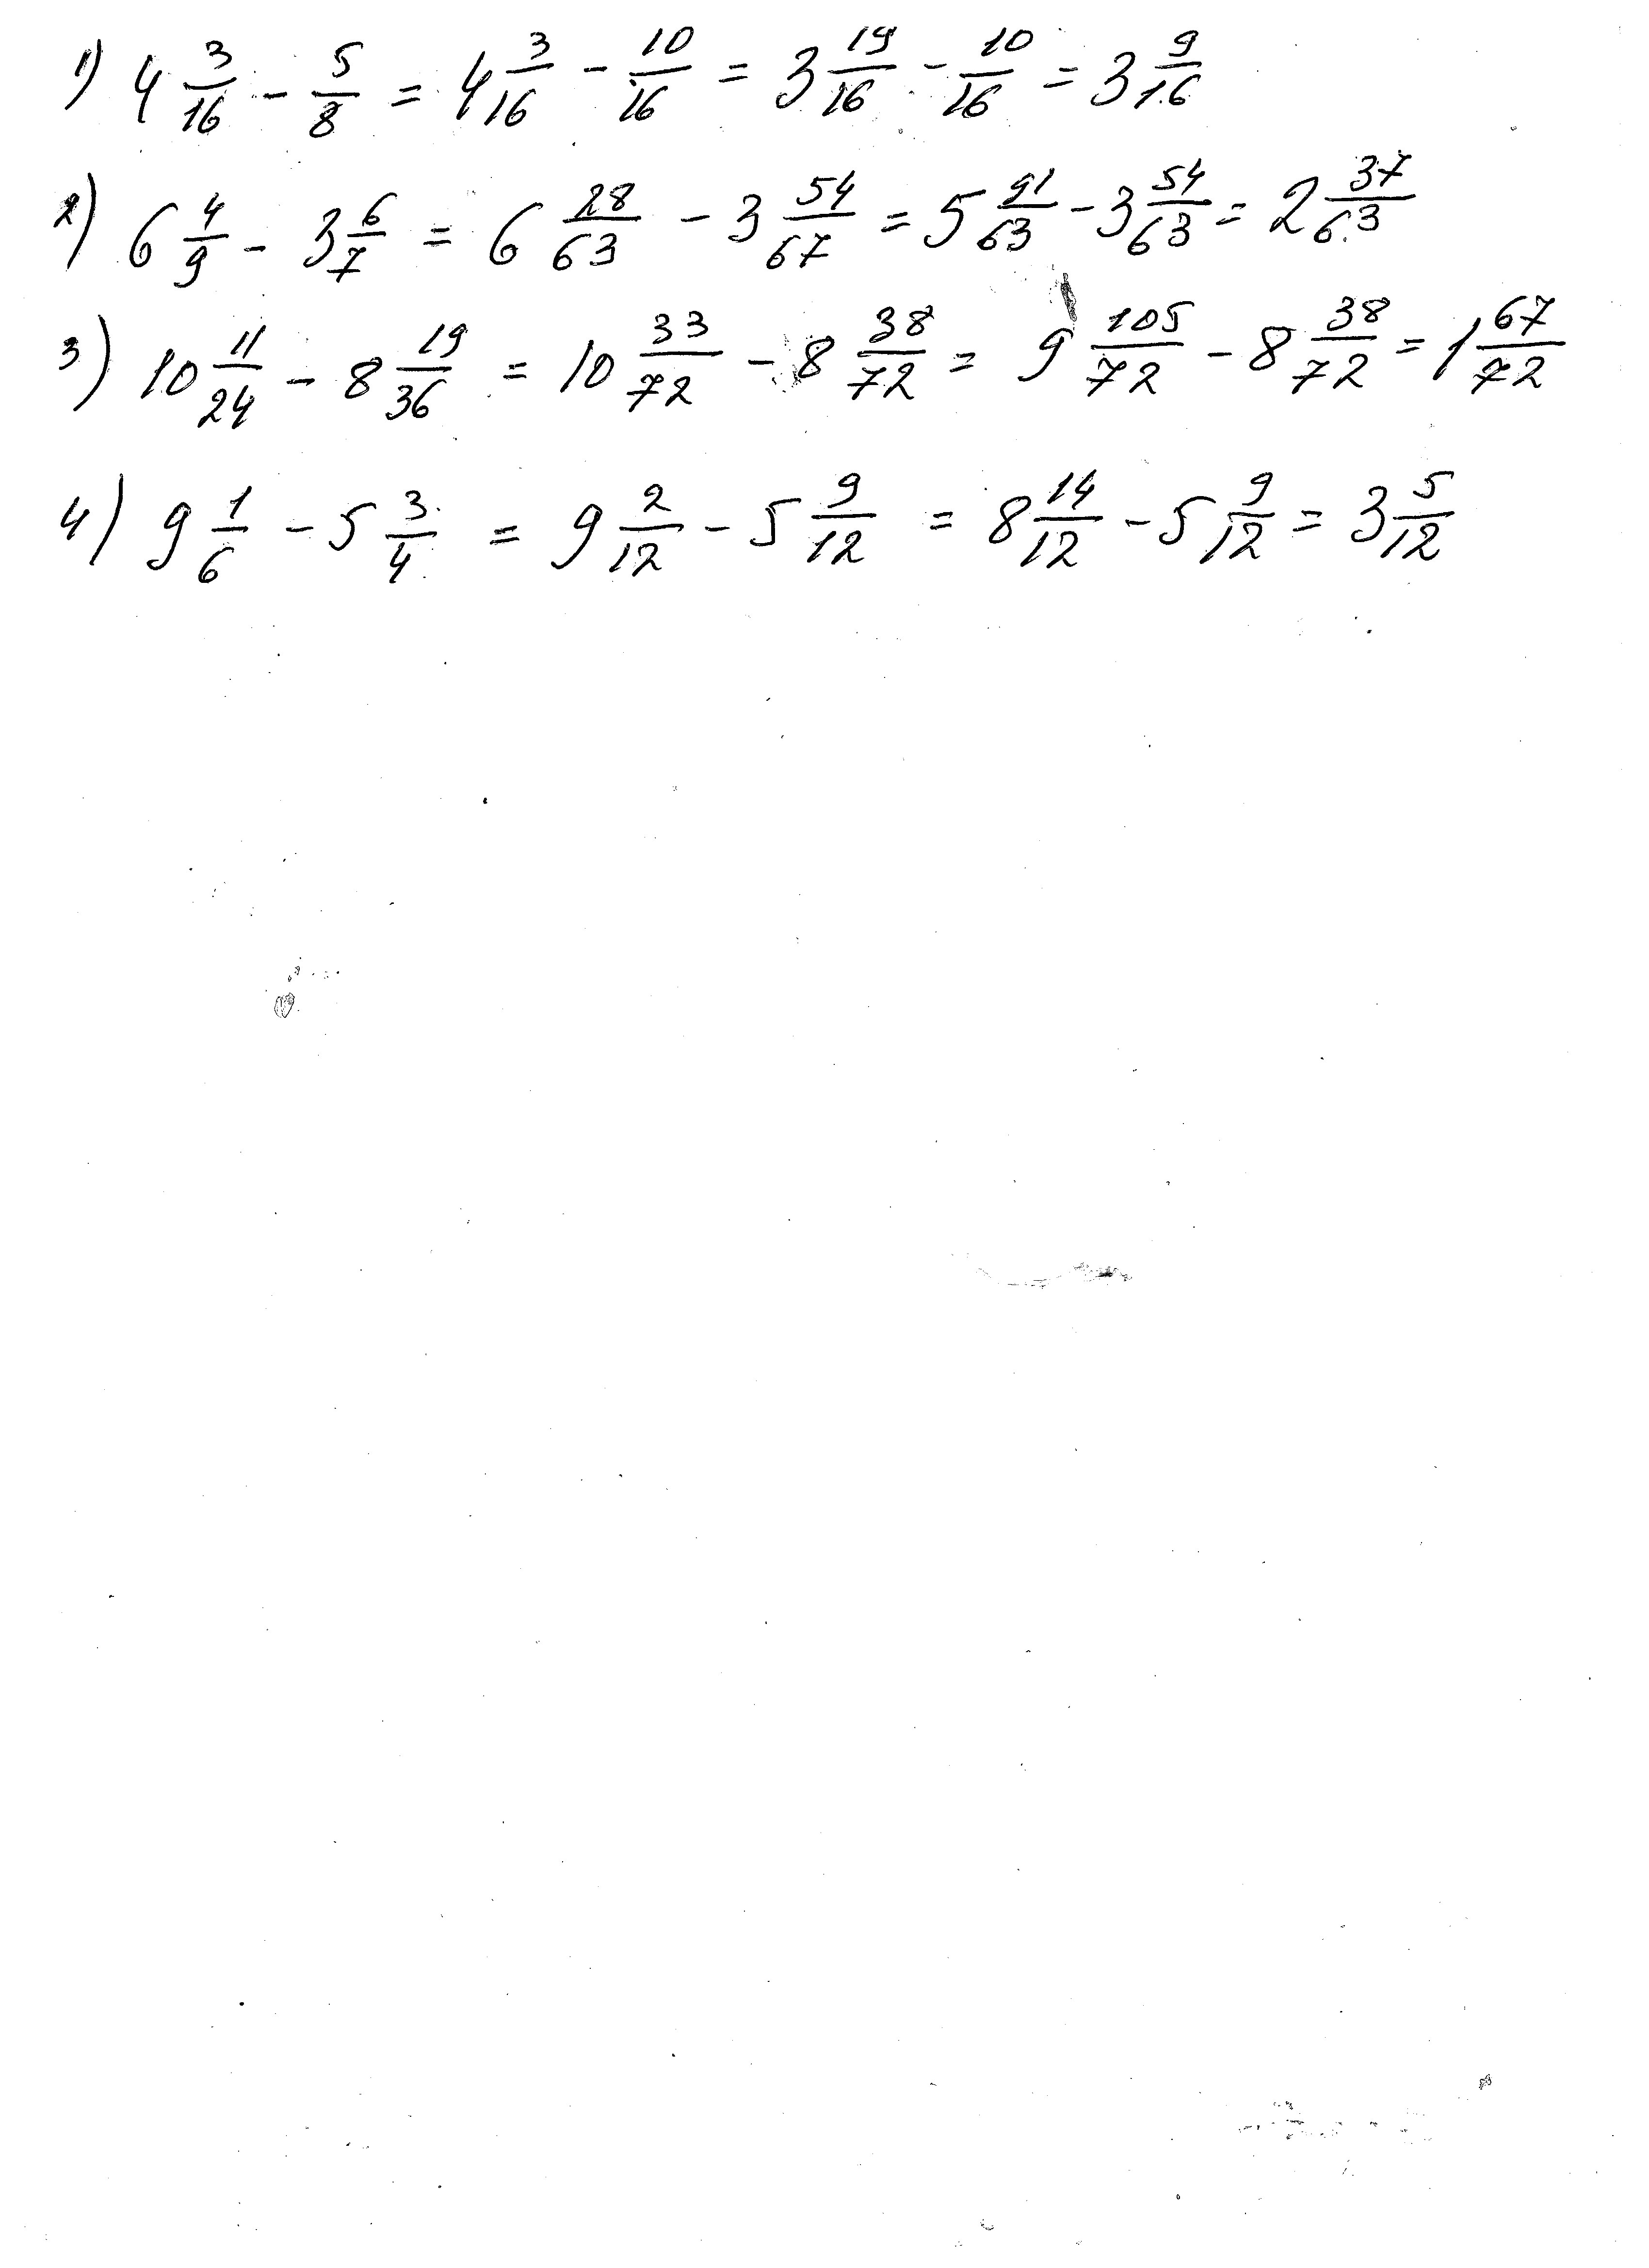 1) 4 3/16 - 5/8 = 4 3/16 - 10/16 = 3 19/16 - 10/16 = 3 9/16
2) 6 4/9 - 3 6/7 = 6 28/63 - 3 54/67 = 5 91/63 - 3 54/63 = 2 37/63
3) 10 11/24 - 8 19/36 = 10 33/72 - 8 38/72 = 9 105/72 - 8 38/72 = 1 67/72
4) 9 1/6 - 5 3/4 = 9 2/12 - 5 9/12 = 8 14/12 - 5 9/12 = 3 5/12